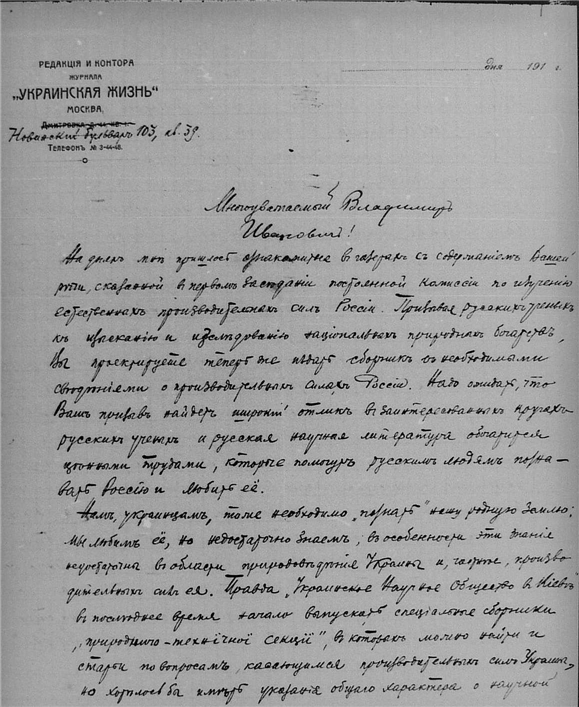 РЕДАКЦІЯ И КОНТОРА
ЖУРНАЛА
„УКРАИНСКАЯ ЖИЗНЬ“
МОСКВА.
Новинскій бульваръ 103, кв. 39.
ТЕЛЕФОНЪ №
дня 191 г.
Многоуважаемый Владиміръ
Ивановичъ!
На дняхъ мнѣ пришлось ознакомиться въ газетахъ съ содержаніемъ Вашей
рѣчи, сказанной въ первомъ засѣданіи постоянной комиссіи по изученію
естественныхъ производительныхъ силъ Россіи. Призывая русскихъ ученыхъ
къ изысканію и изслѣдованію національныхъ природныхъ богатствъ,
Вы проектируете теперь же издать сборникъ съ необходимыми
свѣдѣніями о производительныхъ силахъ Россіи. Надо ожидать, что
Вашъ призывъ найдетъ широкій откликъ въ заинтересованныхъ кругахъ
русскихъ ученыхъ и русская научная литература обогатится
цѣнными трудами, которые помогутъ русскимъ людямъ позна-
вать Россію и любить её.
Намъ, украинцамъ, тоже необходимо „познать“ нашу родную землю:
мы любимъ её, но недостаточно знаемъ; въ особенности эти знанія
недостаточны въ области природовѣдѣнія Украины и, частнѣе, произво-
дительныхъ силъ ея. Правда „Украинское Научное Общество въ Кіевѣ“
въ послѣднее время начало выпускать спеціальные сборники
„природничо-технічної секції“, въ которыхъ можно найти и
статьи по вопросамъ, касающимся производительныхъ силъ Украины,
но хотѣлось бы имѣть указанія общаго характера о научной